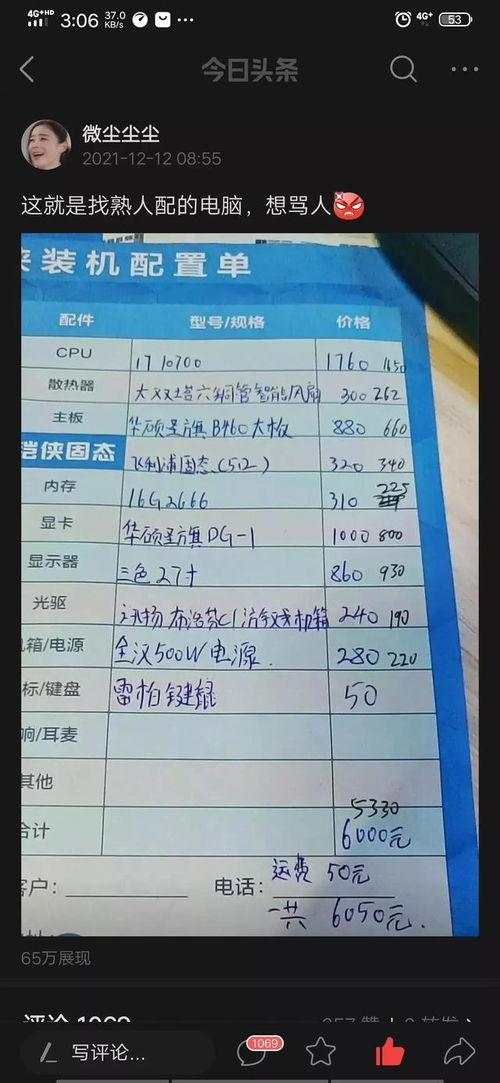 4G+HD 3:06 37.0 KB/s ... 4G+ 53
今日头条
微尘尘尘
2021-12-12 08:55
这就是找熟人配的电脑，想骂人
装机配置单
配件 型号/规格 价格
CPU 17 10700 1760 1650
散热器 大双塔六铜管智能风扇 300 262
主板 华硕星旗B460大板 880 660
铠侠固态 飞利浦固态(512) 320 340
内存 16G2666 310 225
显卡 华硕星旗DG-1 1000 800
显示器 三色27寸 860 930
光驱 机箱 240 190
箱/电源 全汉500W电源. 280 220
标/键盘 雷柏键鼠 50
响/耳麦
其他
5330
合计 6000元
客户： 电话： 运费 50元
一共 6050元.
65万展现
评论 1069
写评论... 1069